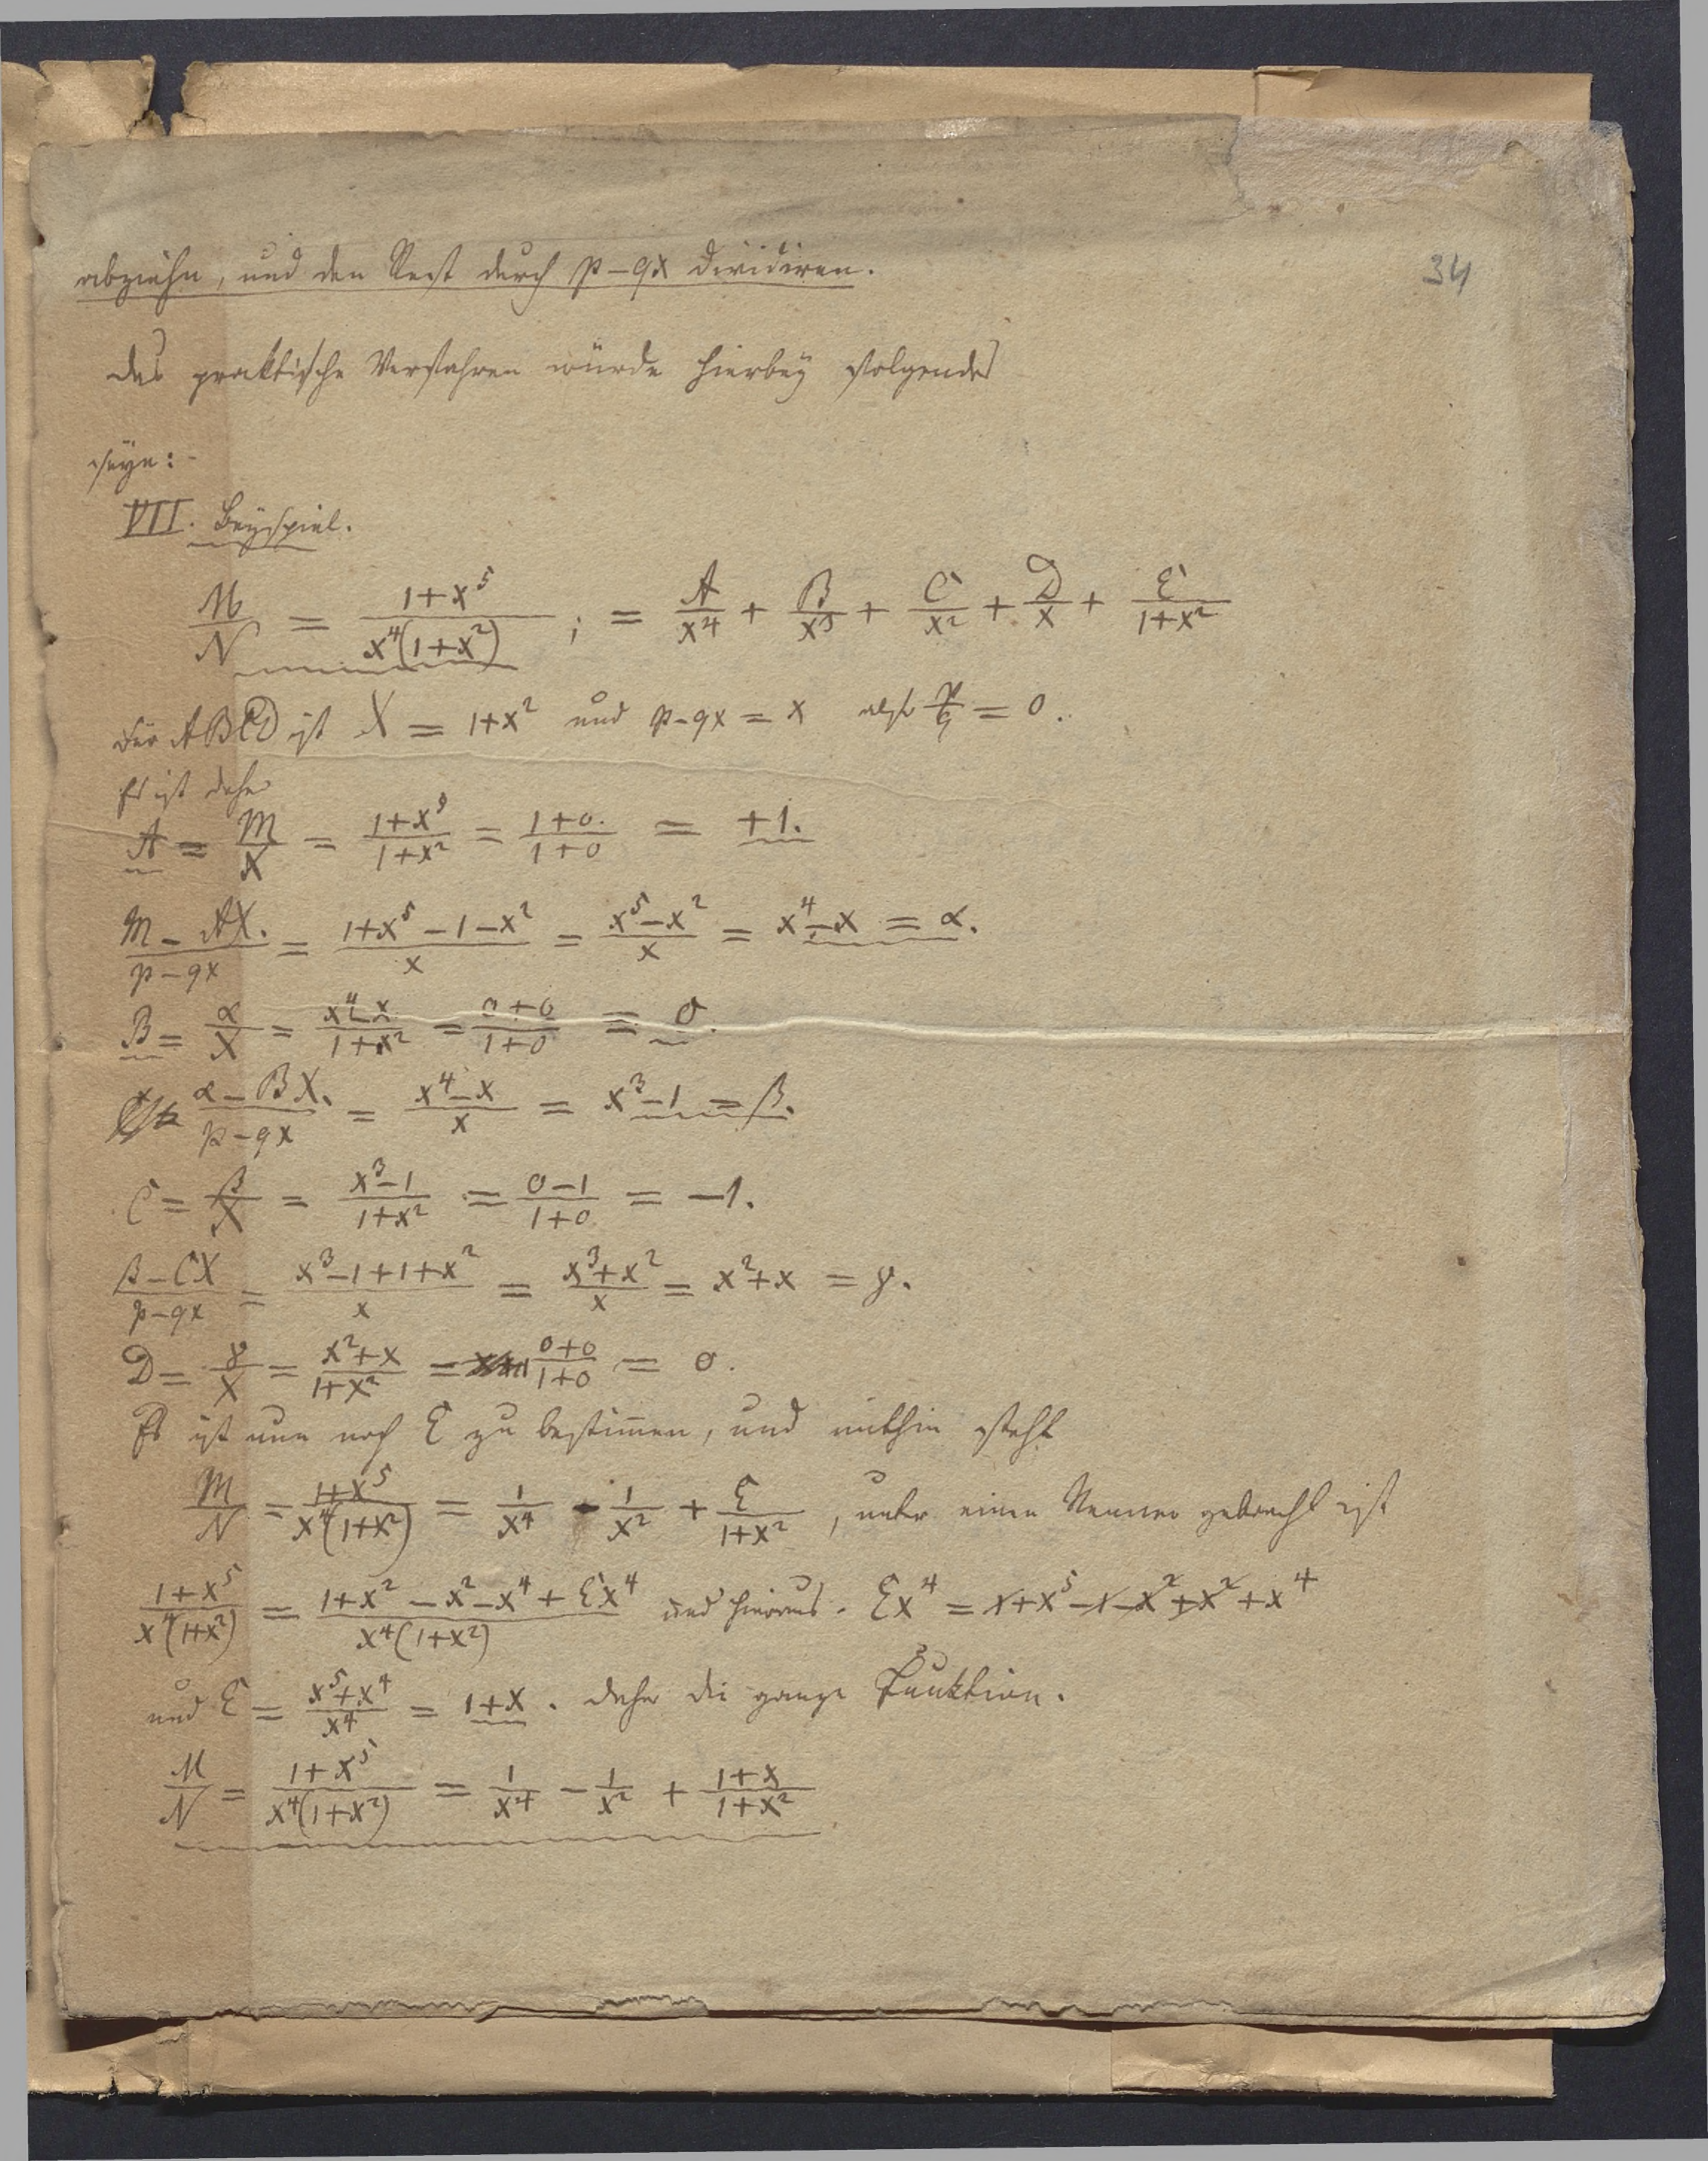 34
abziehn, und den Rest durch p-qx dividiren.
Das praktische Verfahren würde hierbey folgendes
seyn:
VII. Beyspiel.
M/N = (1+x^5)/(x^4(1+x^2)) ; = A/x^4 + B/x^3 + C/x^2 + D/x + E/(1+x^2)
Für ABCD ist X = 1+x^2 und p-qx = x also p/q = 0.
Es ist daher
A = M/X = (1+x^5)/(1+x^2) = (1+0.)/(1+0) = +1.
(M-AX.)/(p-qx) = (1+x^5-1-x^2)/x = (x^5-x^2)/x = x^4-x = α.
B = α/X = (x^4-x)/(1+x^2) = (0+0)/(1+0) = 0.
(α-BX.)/(p-qx) = (x^4-x)/x = x^3-1 = β.
C = β/X = (x^3-1)/(1+x^2) = (0-1)/(1+0) = -1.
(β-CX)/(p-qx) = (x^3-1+1+x^2)/x = (x^3+x^2)/x = x^2+x = γ.
D = γ/X = (x^2+x)/(1+x^2) = (0+0)/(1+0) = 0.
Es ist nun noch E zu bestimmen, und mithin steht
M/N = (1+x^5)/(x^4(1+x^2)) = 1/x^4 - 1/x^2 + E/(1+x^2), unter einen Nenner gebracht ist
(1+x^5)/(x^4(1+x^2)) = (1+x^2-x^2-x^4+Ex^4)/(x^4(1+x^2)) und hieraus. Ex^4 = 1+x^5-1-x^2+x^2+x^4
und E = (x^5+x^4)/x^4 = 1+x. daher die ganze Funktion.
M/N = (1+x^5)/(x^4(1+x^2)) = 1/x^4 - 1/x^2 + (1+x)/(1+x^2)